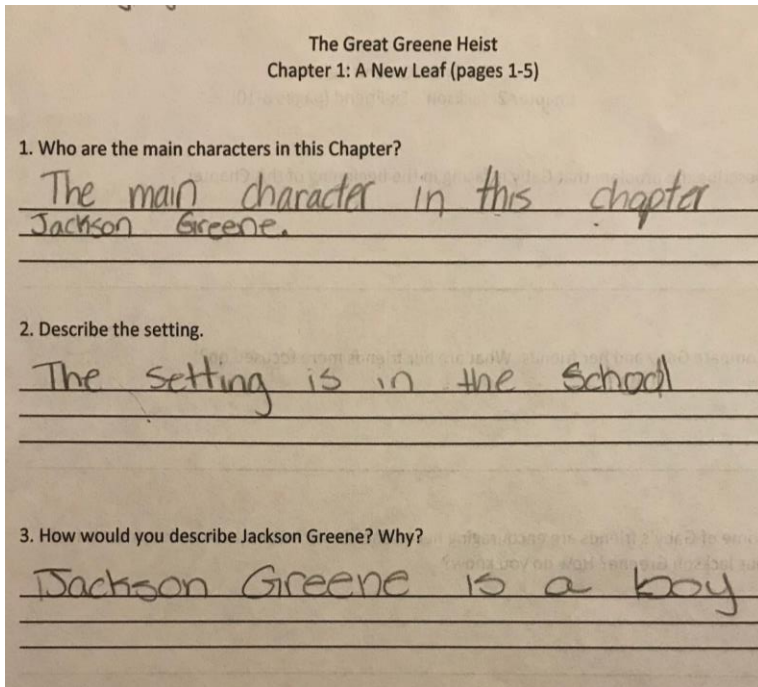 The Great Greene Heist
Chapter 1: A New Leaf (pages 1-5)
1. Who are the main characters in this Chapter?
The main character in this chapter
Jackson Greene.
2. Describe the setting.
The setting is in the School
3. How would you describe Jackson Greene? Why?
Jackson Greene is a boy